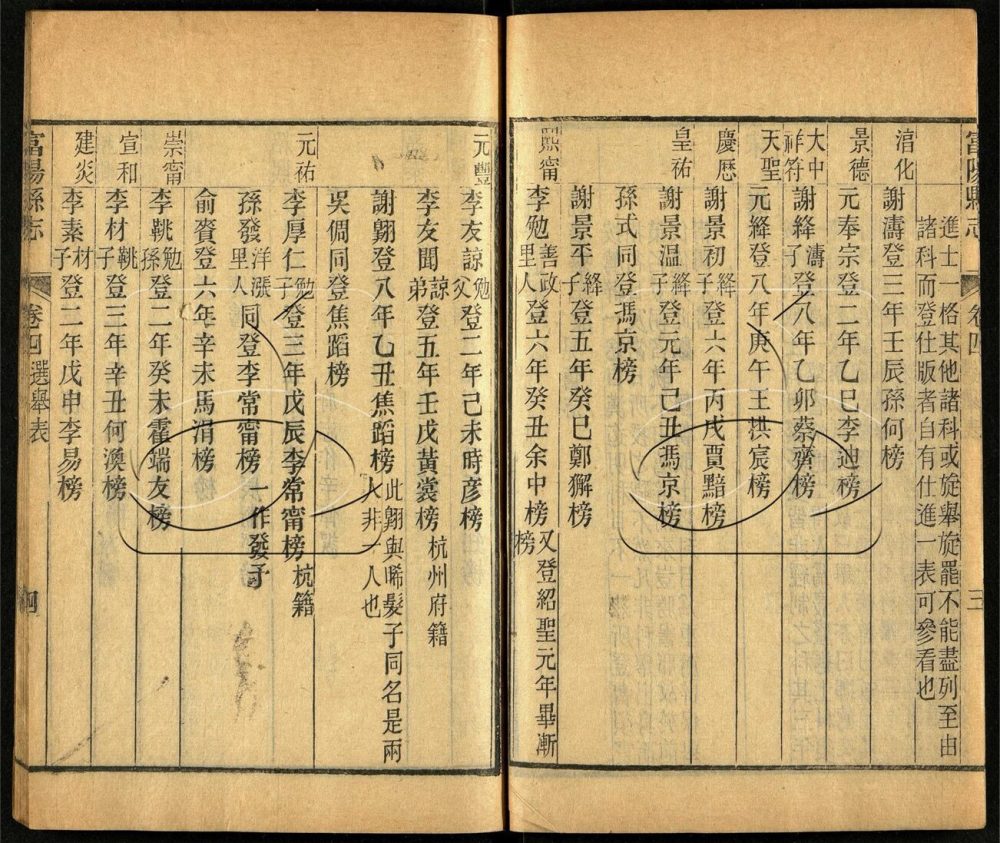 富陽縣志
卷四
三
進士一格其他諸科或旋舉旋罷不能盡列至由
諸科而登仕版者自有仕進一表可參看也
淳化
謝濤登三年壬辰孫何榜
景德
元奉宗登二年乙巳李迪榜
大中祥符
謝絳濤子登八年乙卯蔡齊榜
天聖
元絳登八年庚午王拱宸榜
慶歷
謝景初絳子登六年丙戌賈黯榜
皇祐
謝景溫絳子登元年己丑馮京榜
孫式同登馮京榜
謝景平絳子登五年癸巳鄭獬榜
熙甯
李勉善政里人登六年癸丑余中榜又登紹聖元年畢漸榜
元豐
李友諒勉父登二年己未時彥榜
李友聞諒弟登五年壬戌黃裳榜杭州府籍
謝翺登八年乙丑焦蹈榜此翺與晞髮子同名是兩人非一人也
吳倜同登焦蹈榜
元祐
李厚仁勉子登三年戊辰李常甯榜杭籍
孫發洋漲里人同登李常甯榜一作發子
俞賚登六年辛未馬涓榜
崇甯
李鞉勉孫登二年癸未霍端友榜
宣和
李材鞉子登三年辛丑何渙榜
建炎
李素材子登二年戊申李易榜
富陽縣志
卷四選舉表
四